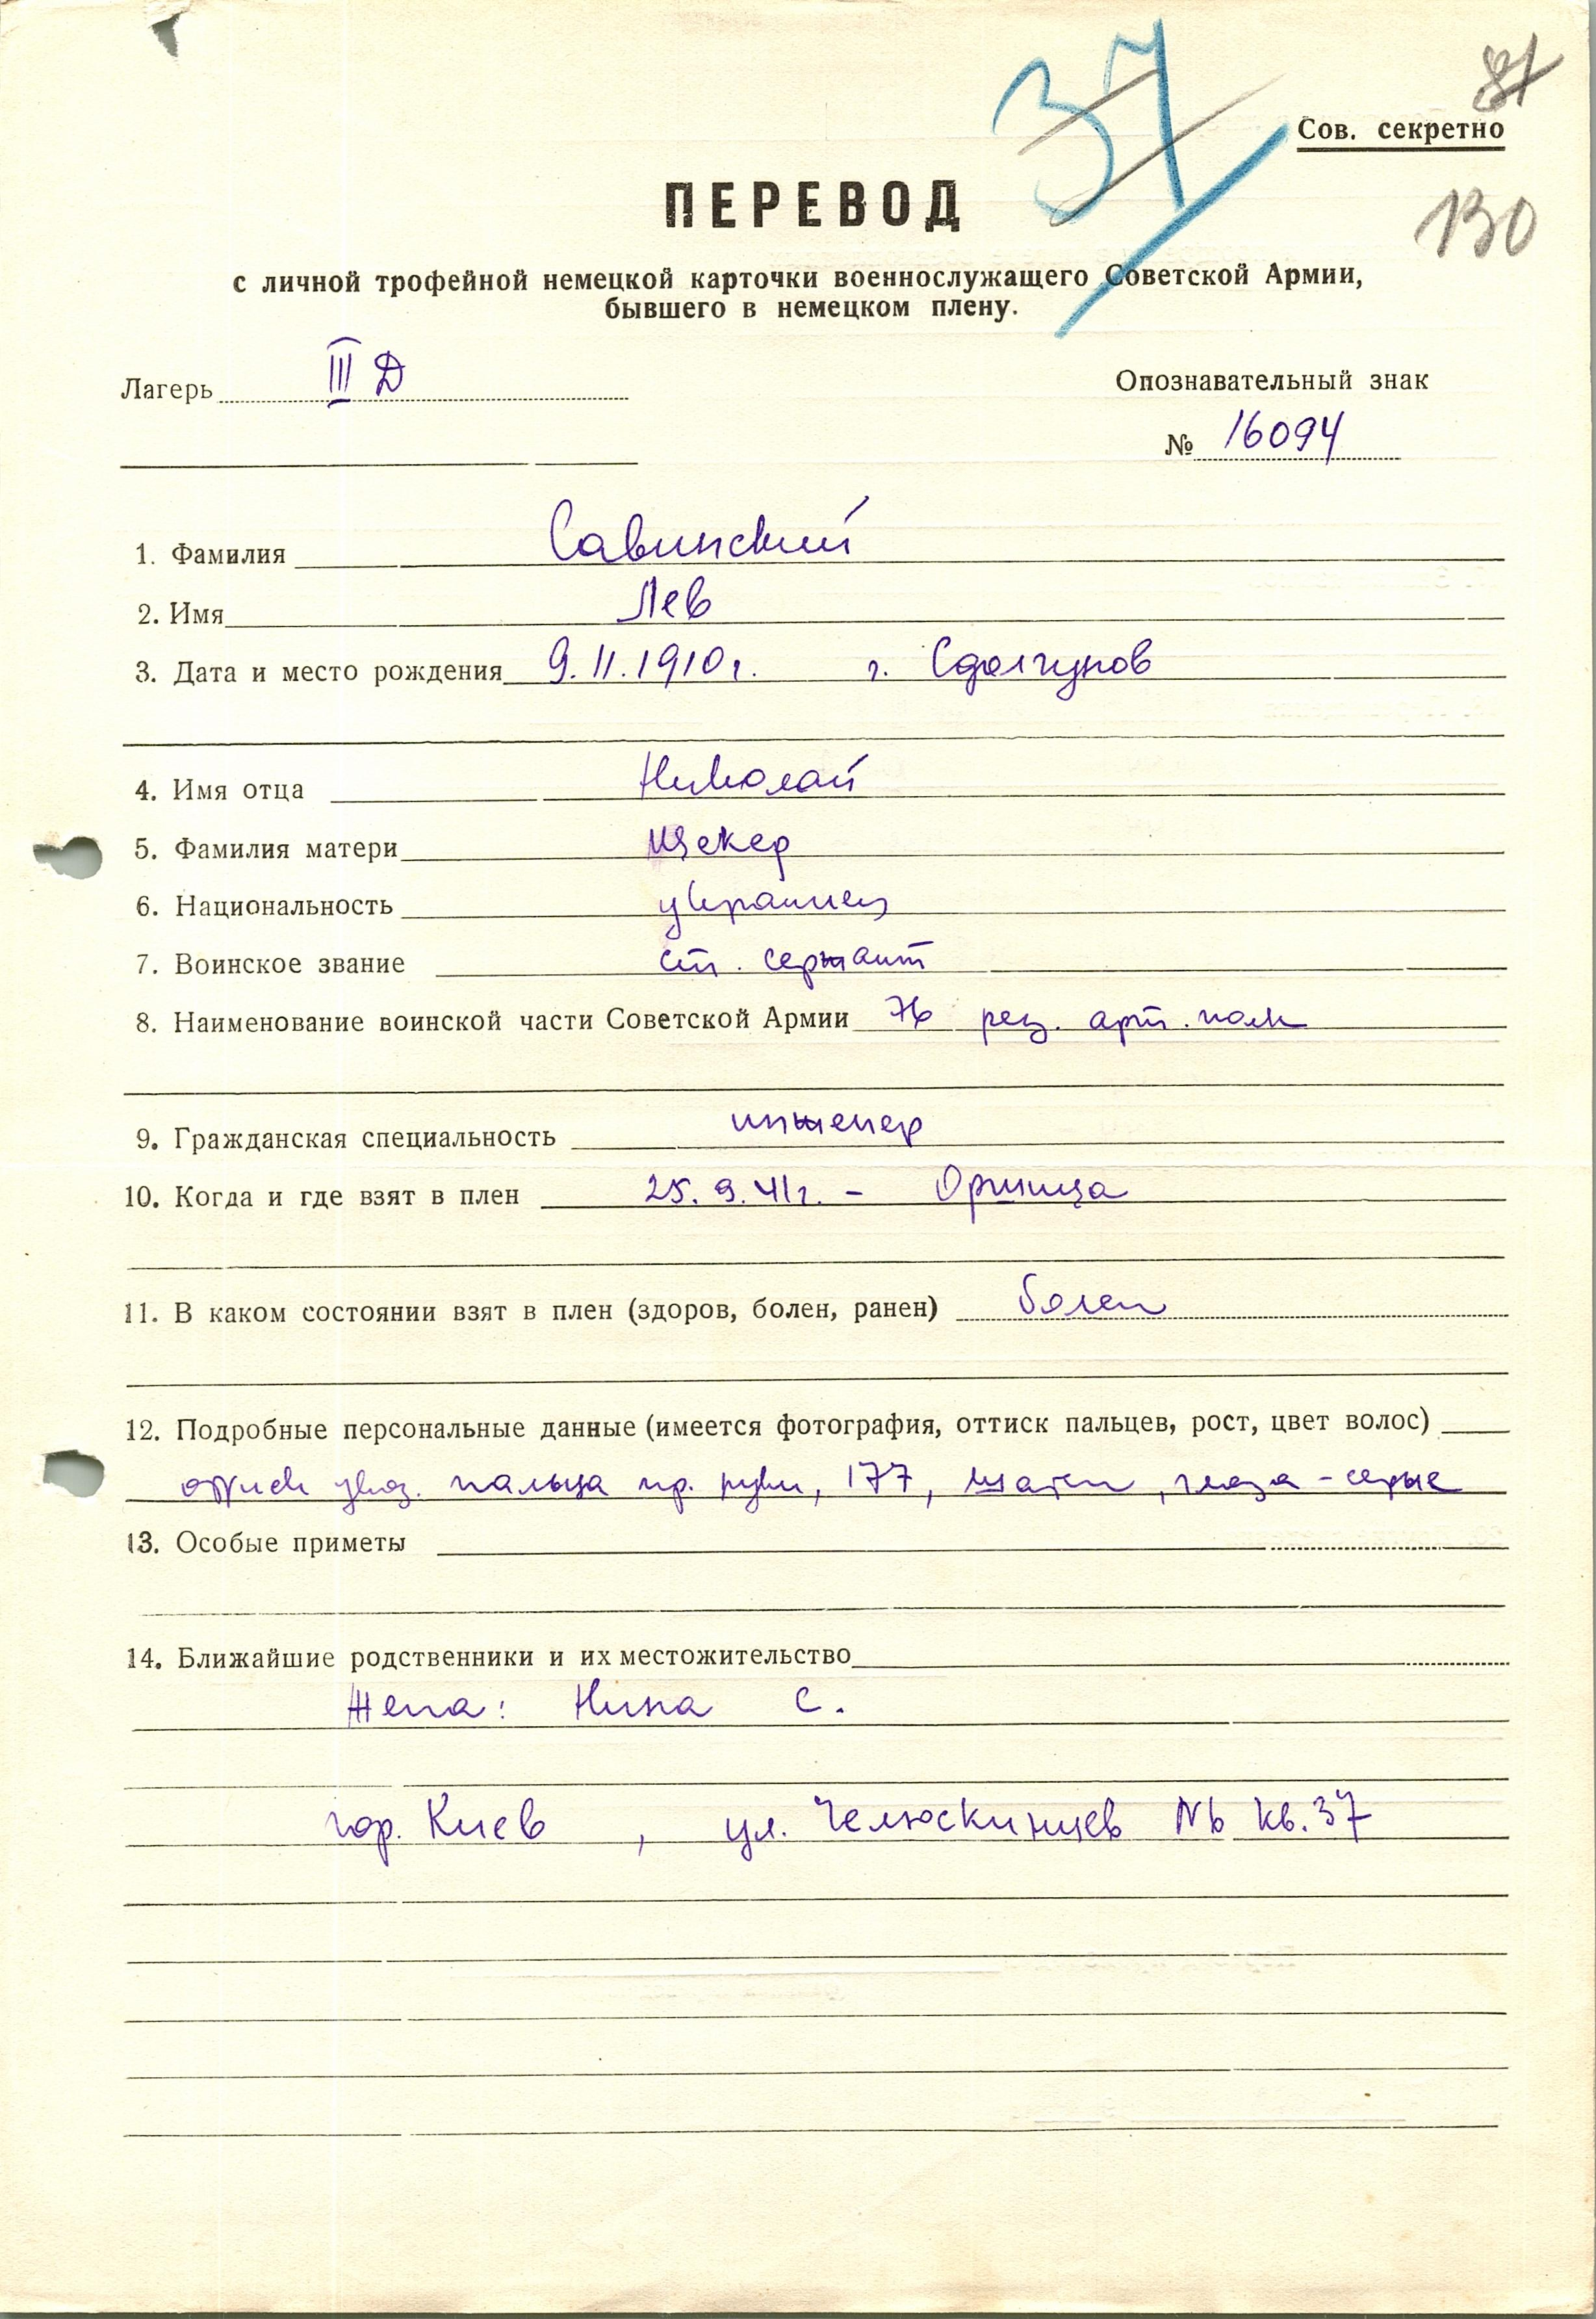 37
81
Сов. секретно
130
ПЕРЕВОД
с личной трофейной немецкой карточки военнослужащего Советской Армии,
бывшего в немецком плену.
Лагерь III Д
Опознавательный знак
№ 16094
1. Фамилия Савинский
2. Имя Лев
3. Дата и место рождения 9.II.1910г. г. Сдолгунов
4. Имя отца Николай
5. Фамилия матери
6. Национальность украинец
7. Воинское звание ст. сержант
8. Наименование воинской части Советской Армии 76 рез. арт. полк
9. Гражданская специальность инженер
10. Когда и где взят в плен 25.9.41г. – Оржица
11. В каком состоянии взят в плен (здоров, болен, ранен) болен
12. Подробные персональные данные (имеется фотография, оттиск пальцев, рост, цвет волос)
оттиск указ. пальца пр. руки, 177, шатен, глаза – серые
13. Особые приметы
14. Ближайшие родственники и их местожительство
Жена: Нина С.
гор. Киев, ул. Челюскинцев №6 кв. 37